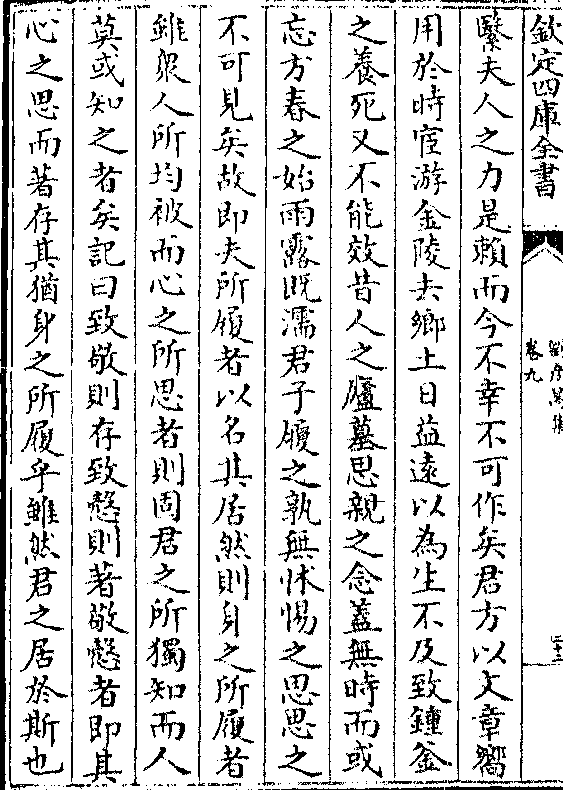 欽定四庫全書
卷九
繄夫人之力是賴而今不幸不可作矣君方以文章嚮
用於時宦游金陵去鄉土日益遠以為生不及致鍾釡
之養死又不能效昔人之廬墓思親之念蓋無時而或
忘方春之始雨露既濡君子履之孰無怵惕之思思之
不可見矣故即夫所履者以名其居然則身之所履者
雖衆人所均被而心之所思者則固君之所獨知而人
莫或知之者矣記曰致敬則存致慤則著敬慤者即其
心之思而著存其猶身之所履乎雖然君之居於斯也